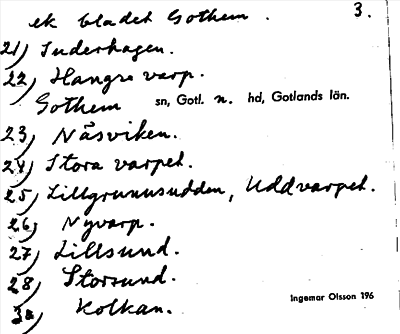 ek bladet Gothem. 3.
21) Inderhagen.
22) Hangre varp.
Gothem sn, Gotl. n. hd, Gotlands län.
23) Näsviken.
24) Stora varpet.
25) Lillgrunnsudden, Uddvarpet.
26) Nyvarp.
27) Lillsund.
28) Storsund.
30) Kolkan.
Ingemar Olsson 196